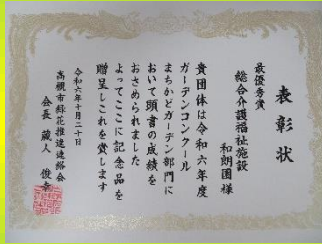 表彰状
最優秀賞
総合介護福祉施設
和朗園様
貴団体は令和六年度
ガーデンコンクール
まちかどガーデン部門に
おいて頭書の成績を
おさめられました
よってここに記念品を
贈呈しこれを賞します
令和六年十月二十日
高槻市緑花推進連絡会
会長 蔵人 俊幸